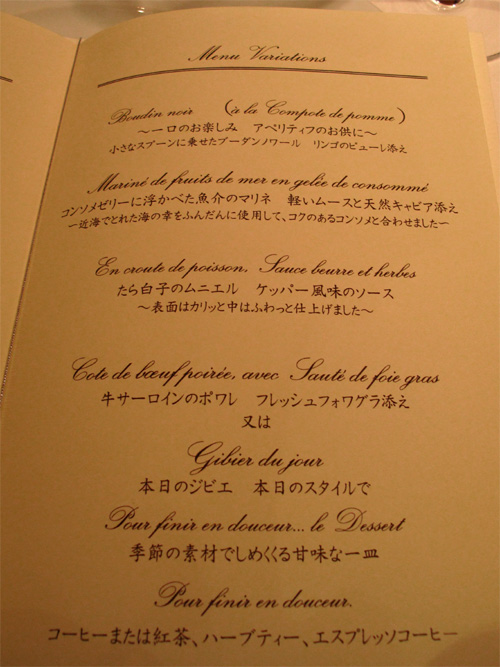 Menu Variations
Boudin noir (à la Compote de pomme)
～一口のお楽しみ アペリティフのお供に～
小さなスプーンに乗せたブーダンノワール リンゴのピューレ添え
Mariné de fruits de mer en gelée de consommé
コンソメゼリーに浮かべた魚介のマリネ 軽いムースと天然キャビア添え
～近海でとれた海の幸をふんだんに使用して、コクのあるコンソメと合わせました～
En croute de poisson, Sauce beurre et herbes
たら白子のムニエル ケッパー風味のソース
～表面はカリッと中はふわっと仕上げました～
Cote de bœuf poirée, avec Sauté de foie gras
牛サーロインのポワレ フレッシュフォワグラ添え
又は
Gibier du jour
本日のジビエ 本日のスタイルで
Pour finir en douceur... le Dessert
季節の素材でしめくくる甘味な一皿
Pour finir en douceur.
コーヒーまたは紅茶、ハーブティー、エスプレッソコーヒー